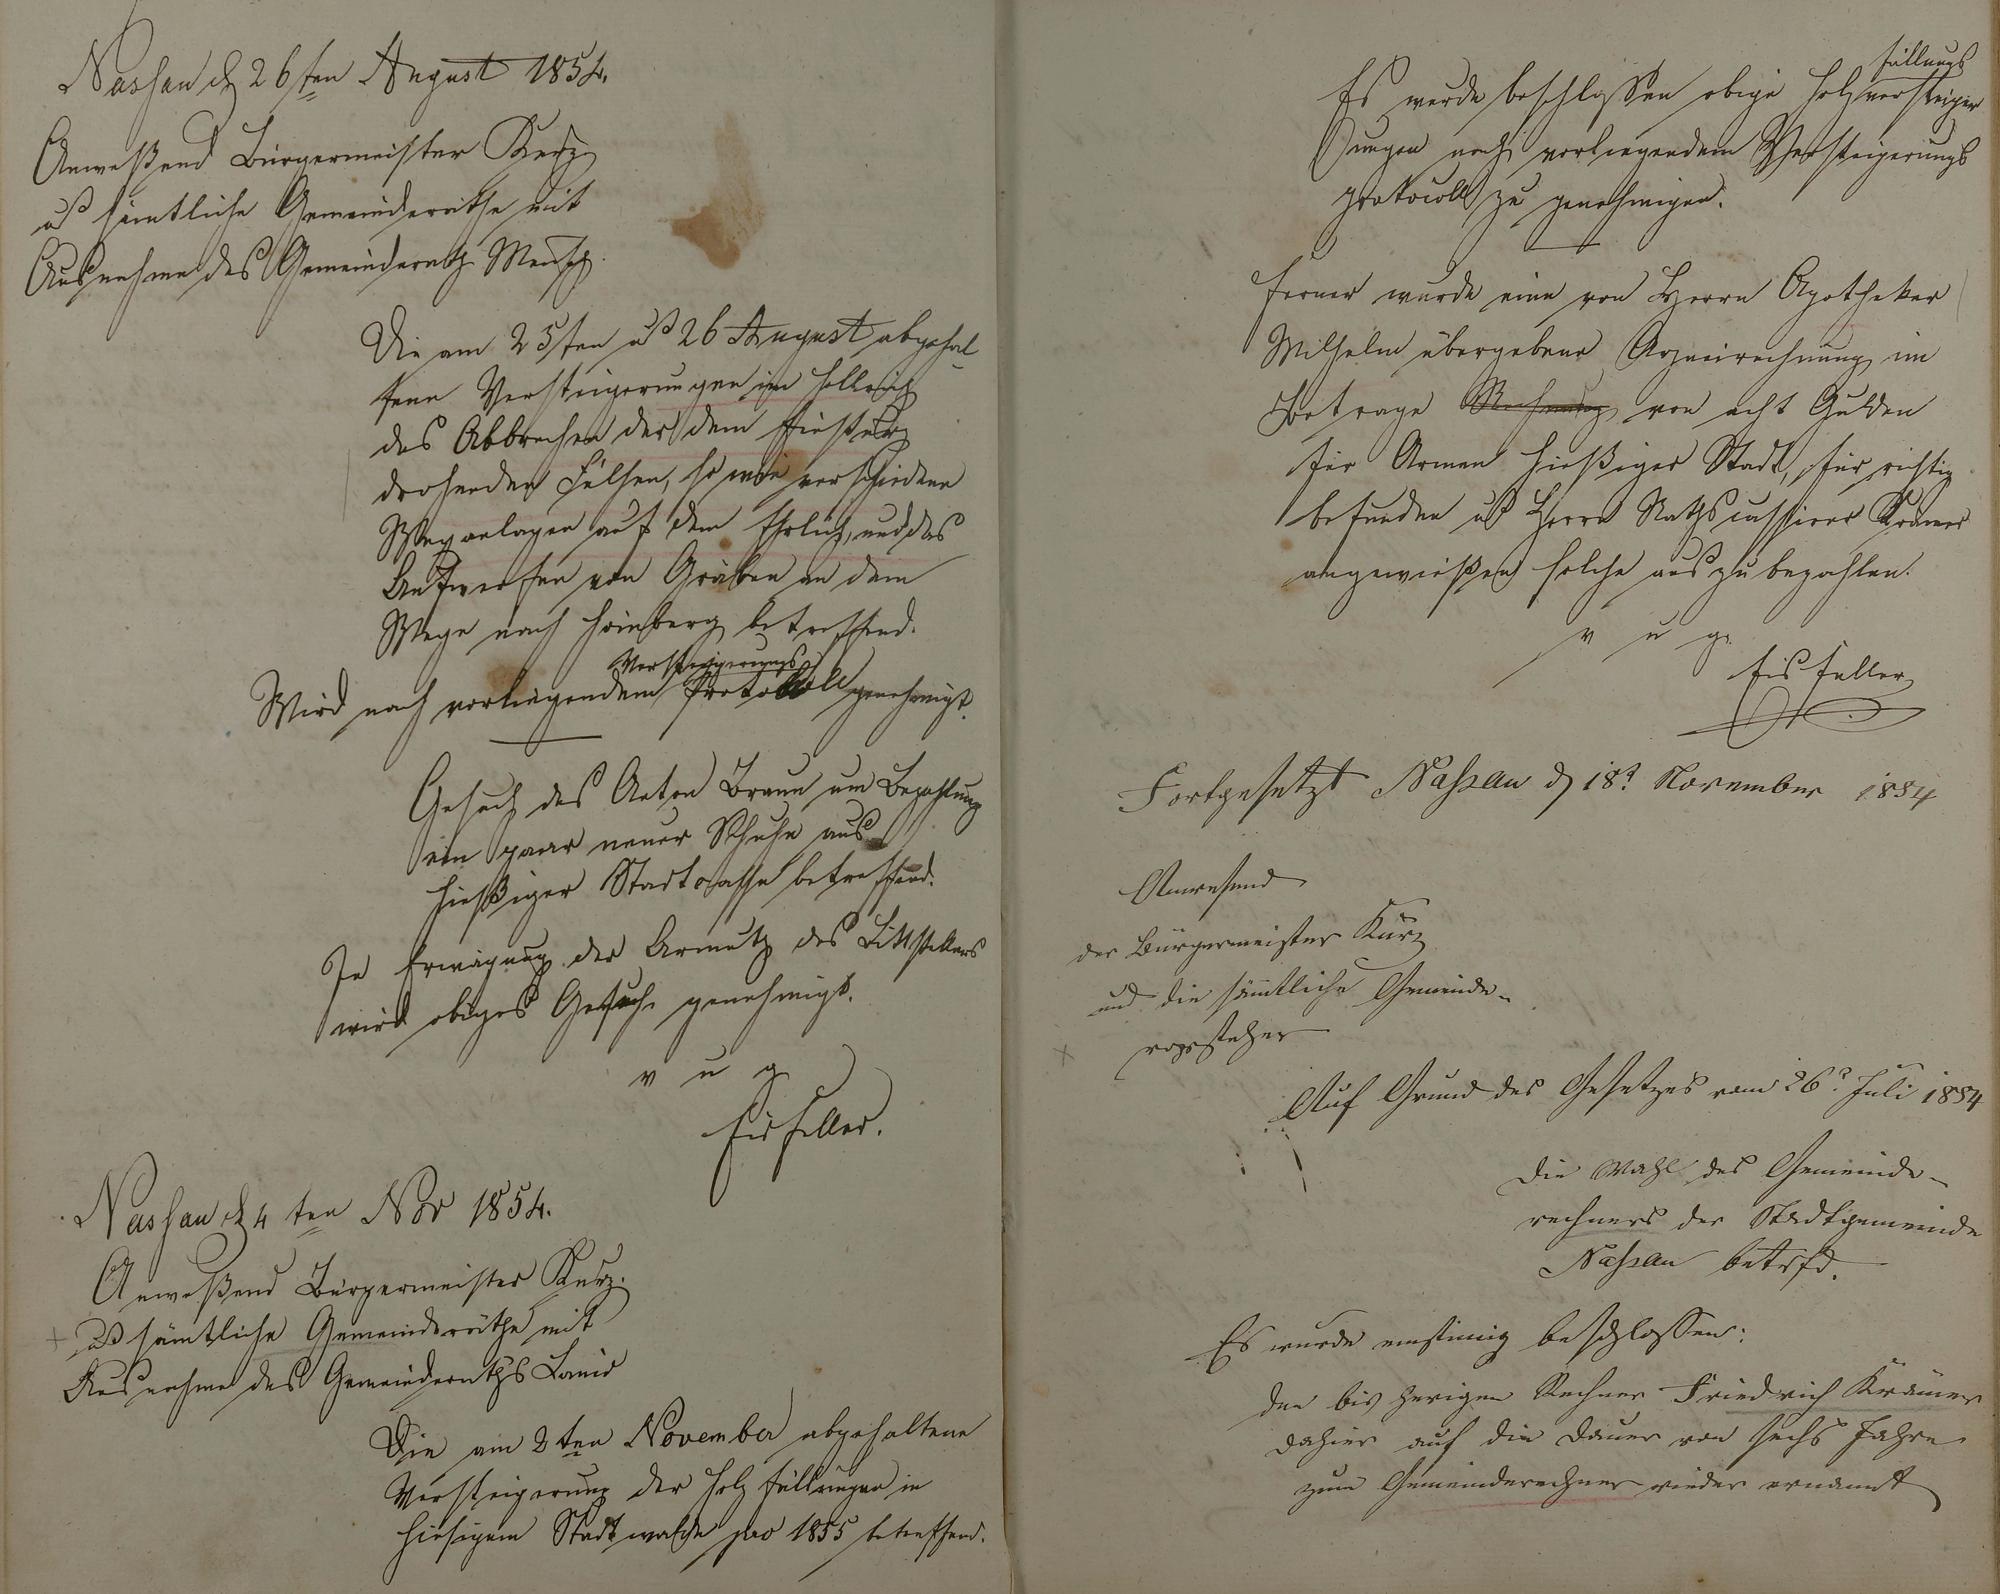 Nassau d 26ten August 1854.
Anweßend Bürgermeister Kurz
u sämtliche Gemeinderäthe mit
Ausnahme des Gemeinderath Mensch.
Die am 25ten u 26 August abgehal-
tene Versteigerungen im Hollerich
des Abbrechen der dem Einsturz
drohenden Felsen, so wie verschiedene
Weganlagen auf dem Ehrlich, und das
Aufwerfen von Gräben an dem
Wege nach Hömberg betreffend.
Wird nach vorliegendem Versteigerungs Protokoll genehmigt.
Gesuch des Anton Braun um Bezahlung
ein paar neuer Schuhe aus
hießiger Stadtcasse betreffend.
In Erwägung der Armuth des Bittstellers
wird obiges Gesuch genehmigt.
v u g
Eisfeller.
Nassau d 4ten Nov 1854.
Anweßend Bürgermeister Kurz.
u sämtliche Gemeinderäthe mit
Ausnahme des Gemeinderaths
Die am 2ten November abgehaltene
Versteigerung der Holzfällungen in
hiesigem Stadtwalde pro 1855 betreffend.
Es wurde beschlossen obige Holzfällungsversteiger
ungen nach vorliegendem Versteigerungs
protocoll zu genehmigen.
Ferner wurde eine von Herrn Apotheker
Wilhelm übergebene Arzneirechnung im
Betrage Rechnung von acht Gulden
für Armen hießiger Stadt, für richtig
befunden u Herrn Rathscassierer Krämer
angewießen solche auszubezahlen.
v u g.
Eisfeller
Fortgesetzt Nassau d 18t November 1854
Anwesend
der Bürgermeister Kurz
und die sämtliche Gemeinde-
vorsteher
Auf Grund des Gesetzes vom 26t Juli 1854
die Wahl des Gemeinde-
rechners der Stadtgemeinde
Nassau betrfd.
Es wurde einstimig beschlossen:
den bis herigen Rechner Friedrich Krämer
dahier auf die Dauer von sechs Jahre
zum Gemeinderechner wieder ernannt